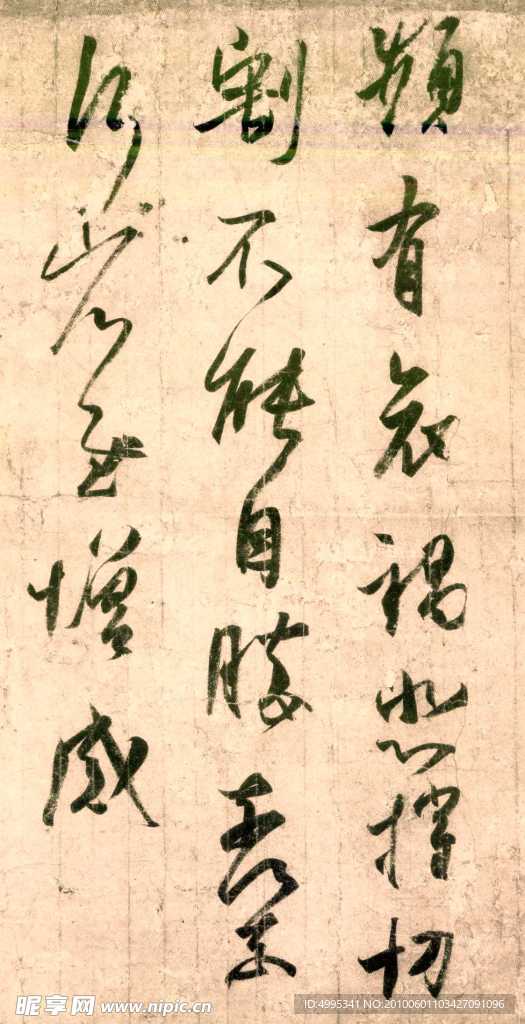 频有哀祸悲摧切
割不能自勝奈
何奈何省慰增感
昵享网 www.nipic.cn
ID:4995341 NO:20100601103427091096